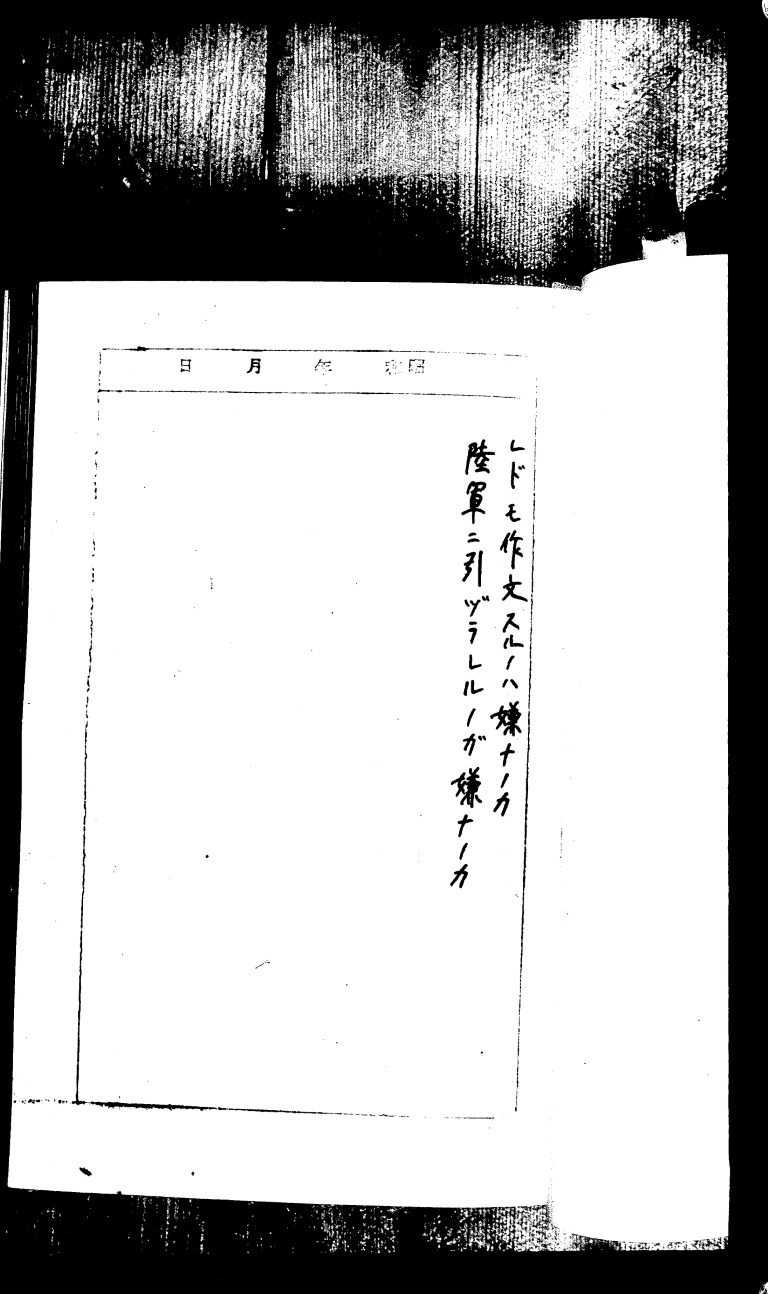 昭和 年 月 日
レドモ作文スルノハ嫌ナノカ
陸軍ニ引ヅラレルノガ嫌ナノカ